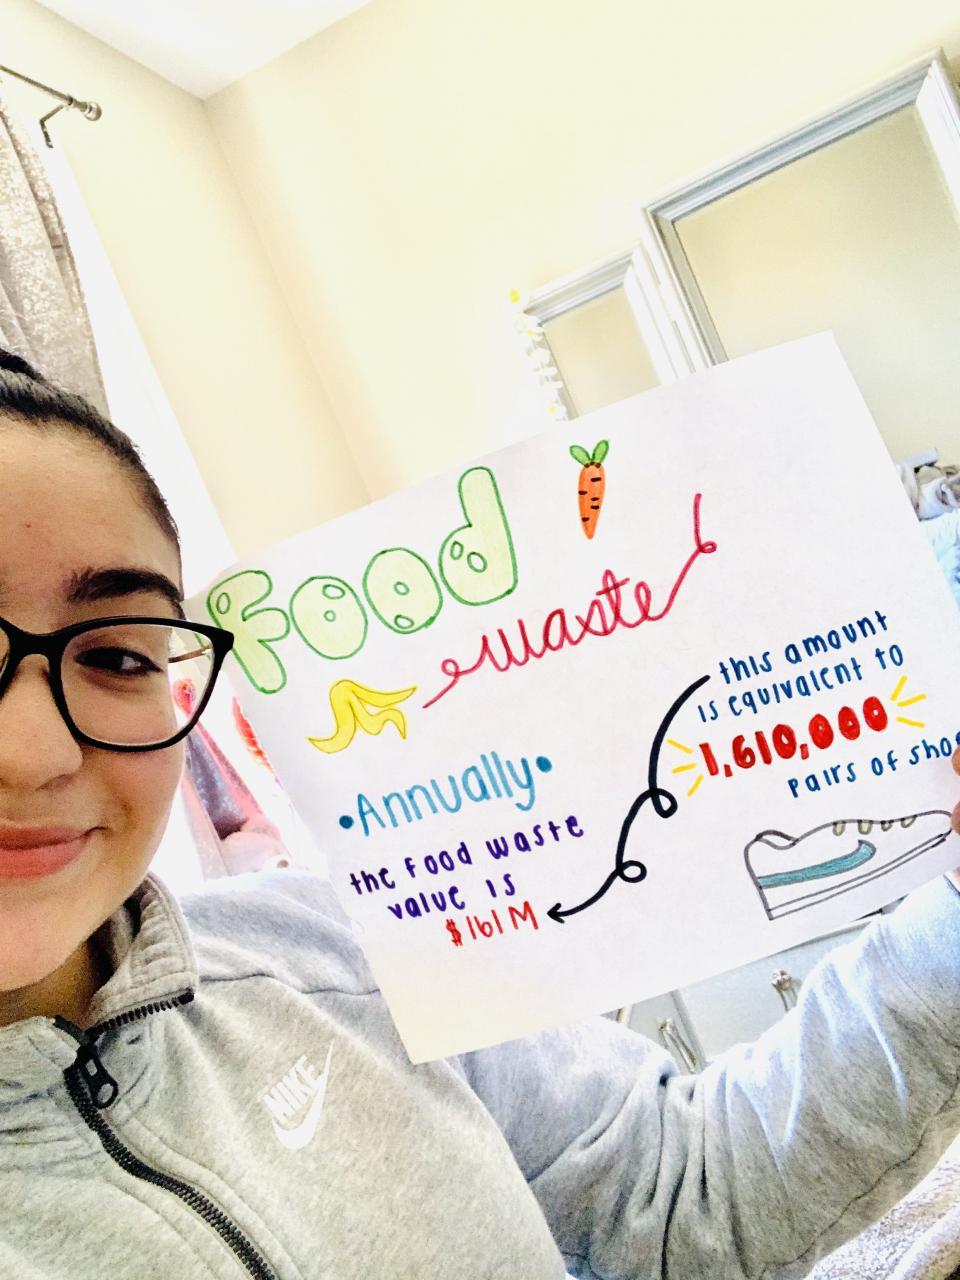 Food
waste
•Annually•
the food waste
value is
$161M
this amount
is equivalent to
1,610,000
pairs of
NIKE